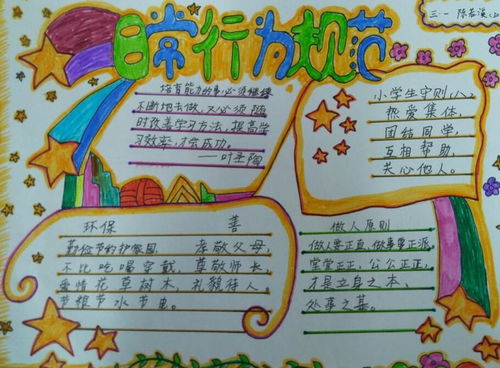 日常行为规范
三·一
培育能力的事必须继续
不断地去做，又必须随
时改善学习方法，提高学
习效率，才会成功。
——叶圣陶
小学生守则
热爱集体，
团结同学，
互相帮助，
关心他人。
环保
勤俭节约护家园，
不比吃喝穿戴，
爱惜花草树木，
节粮节水节电。
善
孝敬父母，
尊敬师长
礼貌待人。
做人原则
做人要正直，做事要正派。
堂堂正正，公公正正，
才是立身之本、
处事之基。